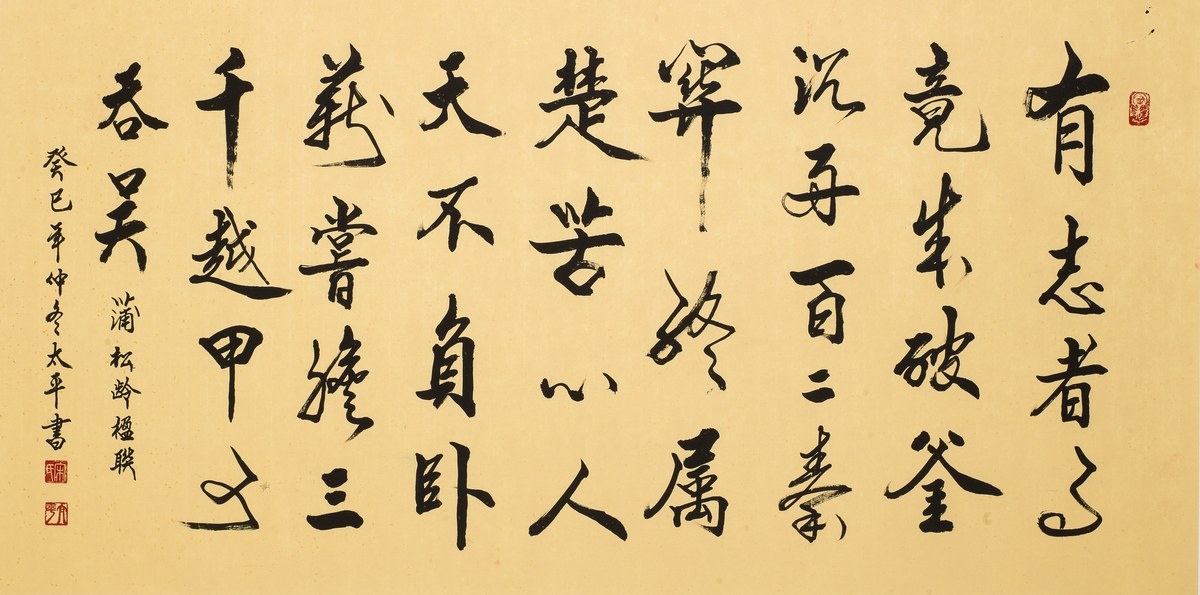 有志者事
竟成破釜
沉舟百二秦
關終屬
楚苦心人
天不負卧
薪嘗膽三
千越甲可
吞吴 蒲松龄楹联
癸巳年仲冬太平書
宋氏
太平